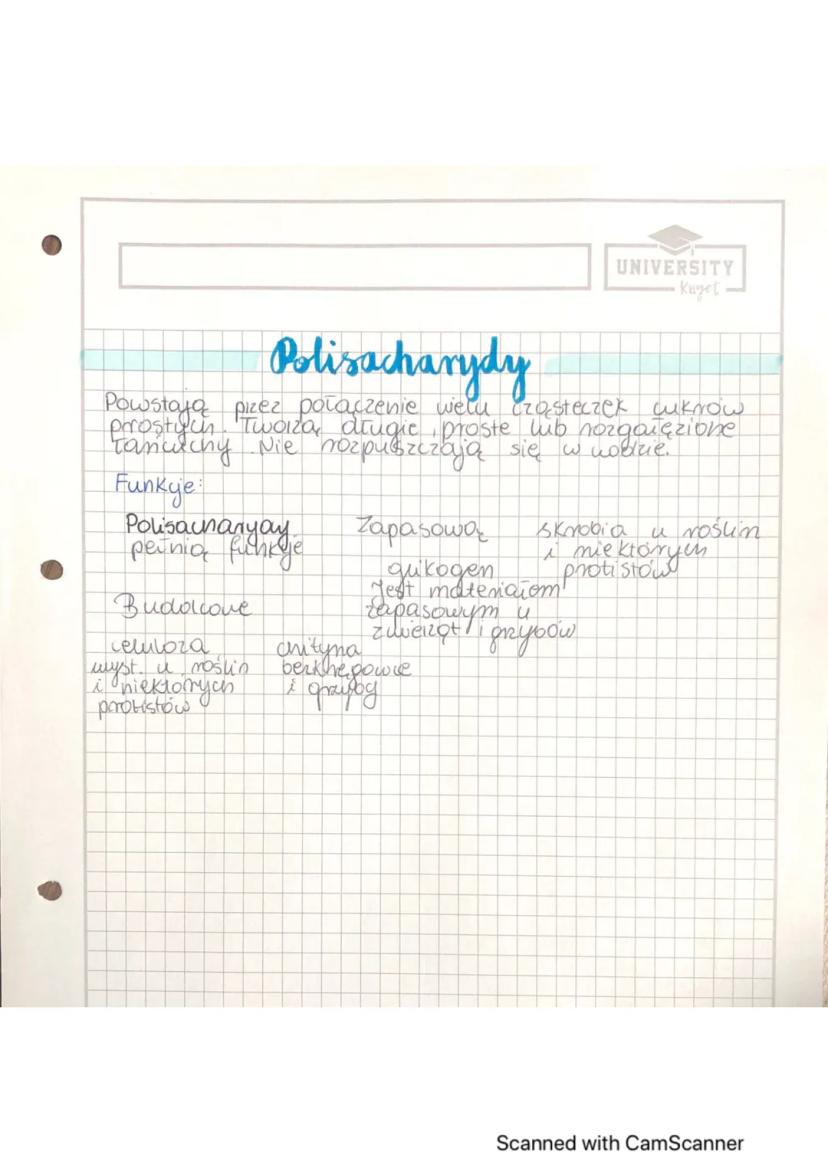 UNIVERSITY
Polisacharydy
Powstają przez połączenie wielu cząsteczek cukrów
prostych. Tworzą długie, proste lub rozgałęzione
łańcuchy. Nie rozpuszczają się w wodzie.
Funkcje:
Polisacharydy
pełnią funkcje
Zapasową
skrobia u roślin
i niektórych
protistów
glikogen
jest materiałem
zapasowym u
zwierząt i grzybów
Budulcowe
celuloza
wyst. u roślin
i niektórych
protistów
chityna
bezkręgowce
i grzyby
Scanned with CamScanner